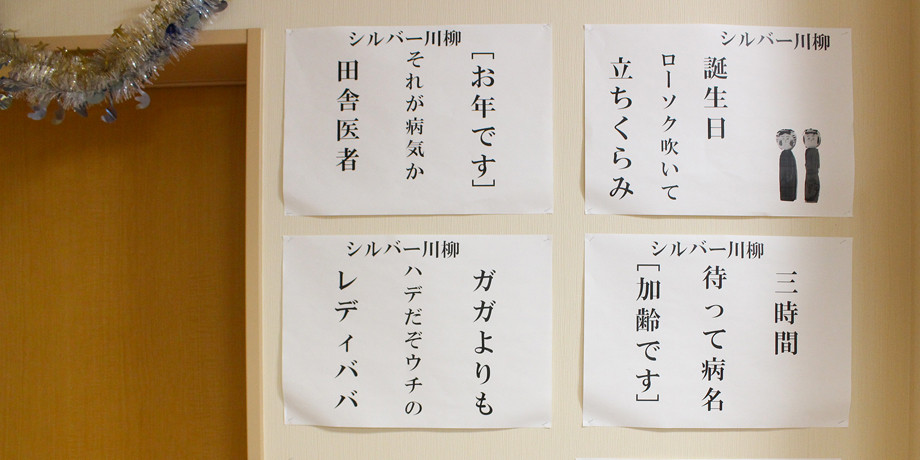 シルバー川柳
誕生日
ローソク吹いて
立ちくらみ
シルバー川柳
[お年です]
それが病気か
田舎医者
シルバー川柳
三時間
待って病名
[加齢です]
シルバー川柳
ガガよりも
ハデだぞウチの
レディババ